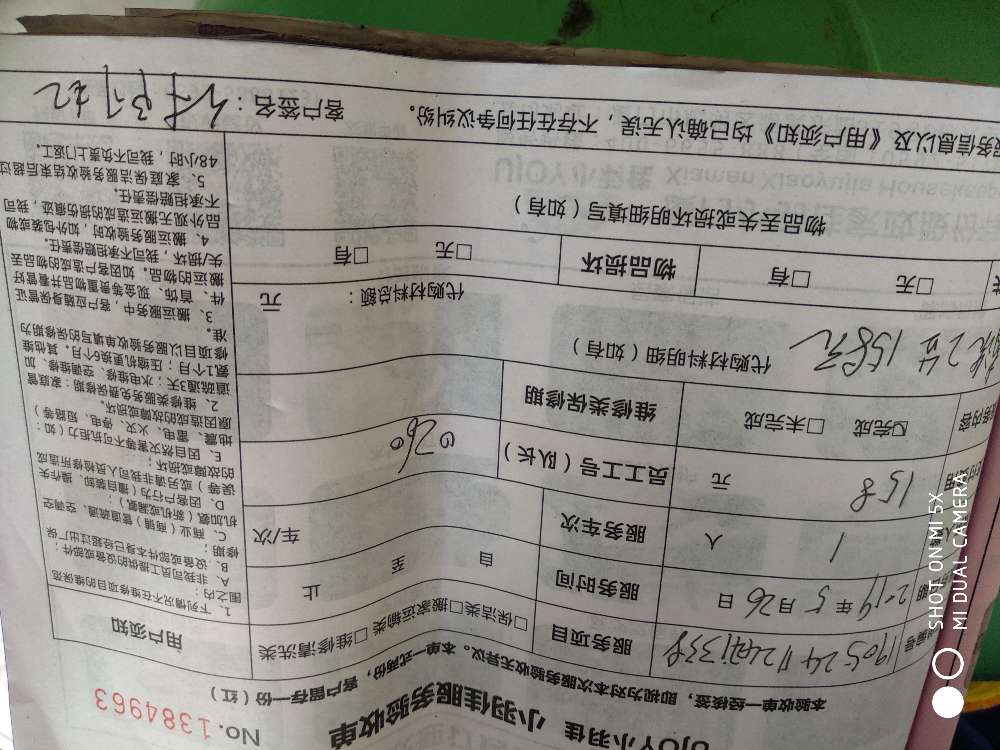 UJOY小羽佳 小羽佳服务验收单
No.1384963
本验收单一经核签，即视为对本次服务验收无异议。本单一式两份，客户留存一份（红）
服务项目 □保洁类□搬家运输类□维修清洗类
2019年5月26日 服务时间 自 至 止
1 人 服务车次 车/次
158 元 员工工号（队长） 0260
☑完成 □未完成 维修类保修期
代购材料明细（如有） 158元
代购材料总额： 元
□无 □有 物品损坏 □无 □有
物品丢失或损坏明细填写（如有）
用户须知
1. 下列情况不在维修项目的维保范
围之内：
A. 非我司员工提供的设备或部件；
B. 设备或部件本身已经超过出厂保
修期；
C. 商业（商铺）管道疏通、空调空
机加氨（新机或漏氨）；
D. 因客户行为（擅自装卸、操作失
误等）或另请非我司人员检修所造成
的故障或损坏；
E. 因自然灾害等不可抗拒力（如：
地震、雷电、火灾、停电、短路等）
原因造成的故障或损坏。
2. 维修类服务免费保修期：家庭管
道疏通3天；水电维修、空调维修、加
氨1个月；压缩机更换6个月。其他维
修项目以服务验收单填写的保修期为
准。
3. 搬运服务中，客户应随身保管证
件、首饰、现金等贵重物品并看管好
搬运的物品。如因客户造成的物品丢
失/损坏，我司不承担赔偿责任。
4. 搬运服务验收时，如外包装或物
品外观无搬运造成的损伤痕迹，我司
不承担赔偿责任。
5. 家庭保洁服务验收结束后超过
48小时，我司不负责上门返工。
务信息以及《用户须知》均已确认无误，不存在任何争议纠纷。 客户签名：
SHOT ON MI 5X
MI DUAL CAMERA